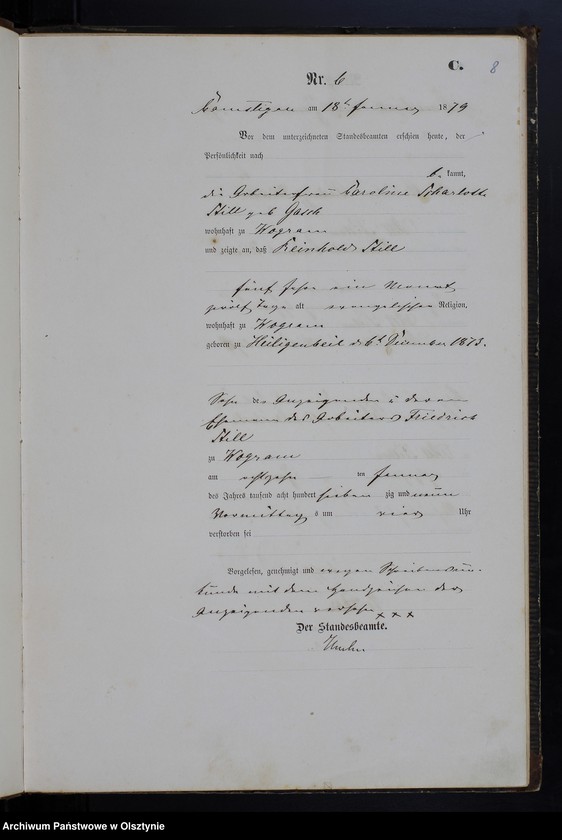 C. 8
Nr. 6
am 18t Januar 1879
Vor dem unterzeichneten Standesbeamten erschien heute, der
Persönlichkeit nach
be kannt,
die Arbeiterfrau Caroline Scharlotte
Still geb
wohnhaft zu Wogram
und zeigte an, daß Reinhold Still
fünf Jahr ein Monat
zwölf Tage alt evangelischer Religion,
wohnhaft zu Wogram
geboren zu Heiligenbeil d 6t Dezember 1873.
Sohn der Anzeigenden u deren
Ehemann des Arbeiters Friedrich
Still
zu Wogram
am achtzehn ten Januar
des Jahres tausend acht hundert sieben zig und neun
Vormittag s um vier Uhr
verstorben sei
Vorgelesen, genehmigt und wegen Schreibensun-
kunde mit dem Handzeichen der
Anzeigenden versehn xxx
Der Standesbeamte.
Archiwum Państwowe w Olsztynie